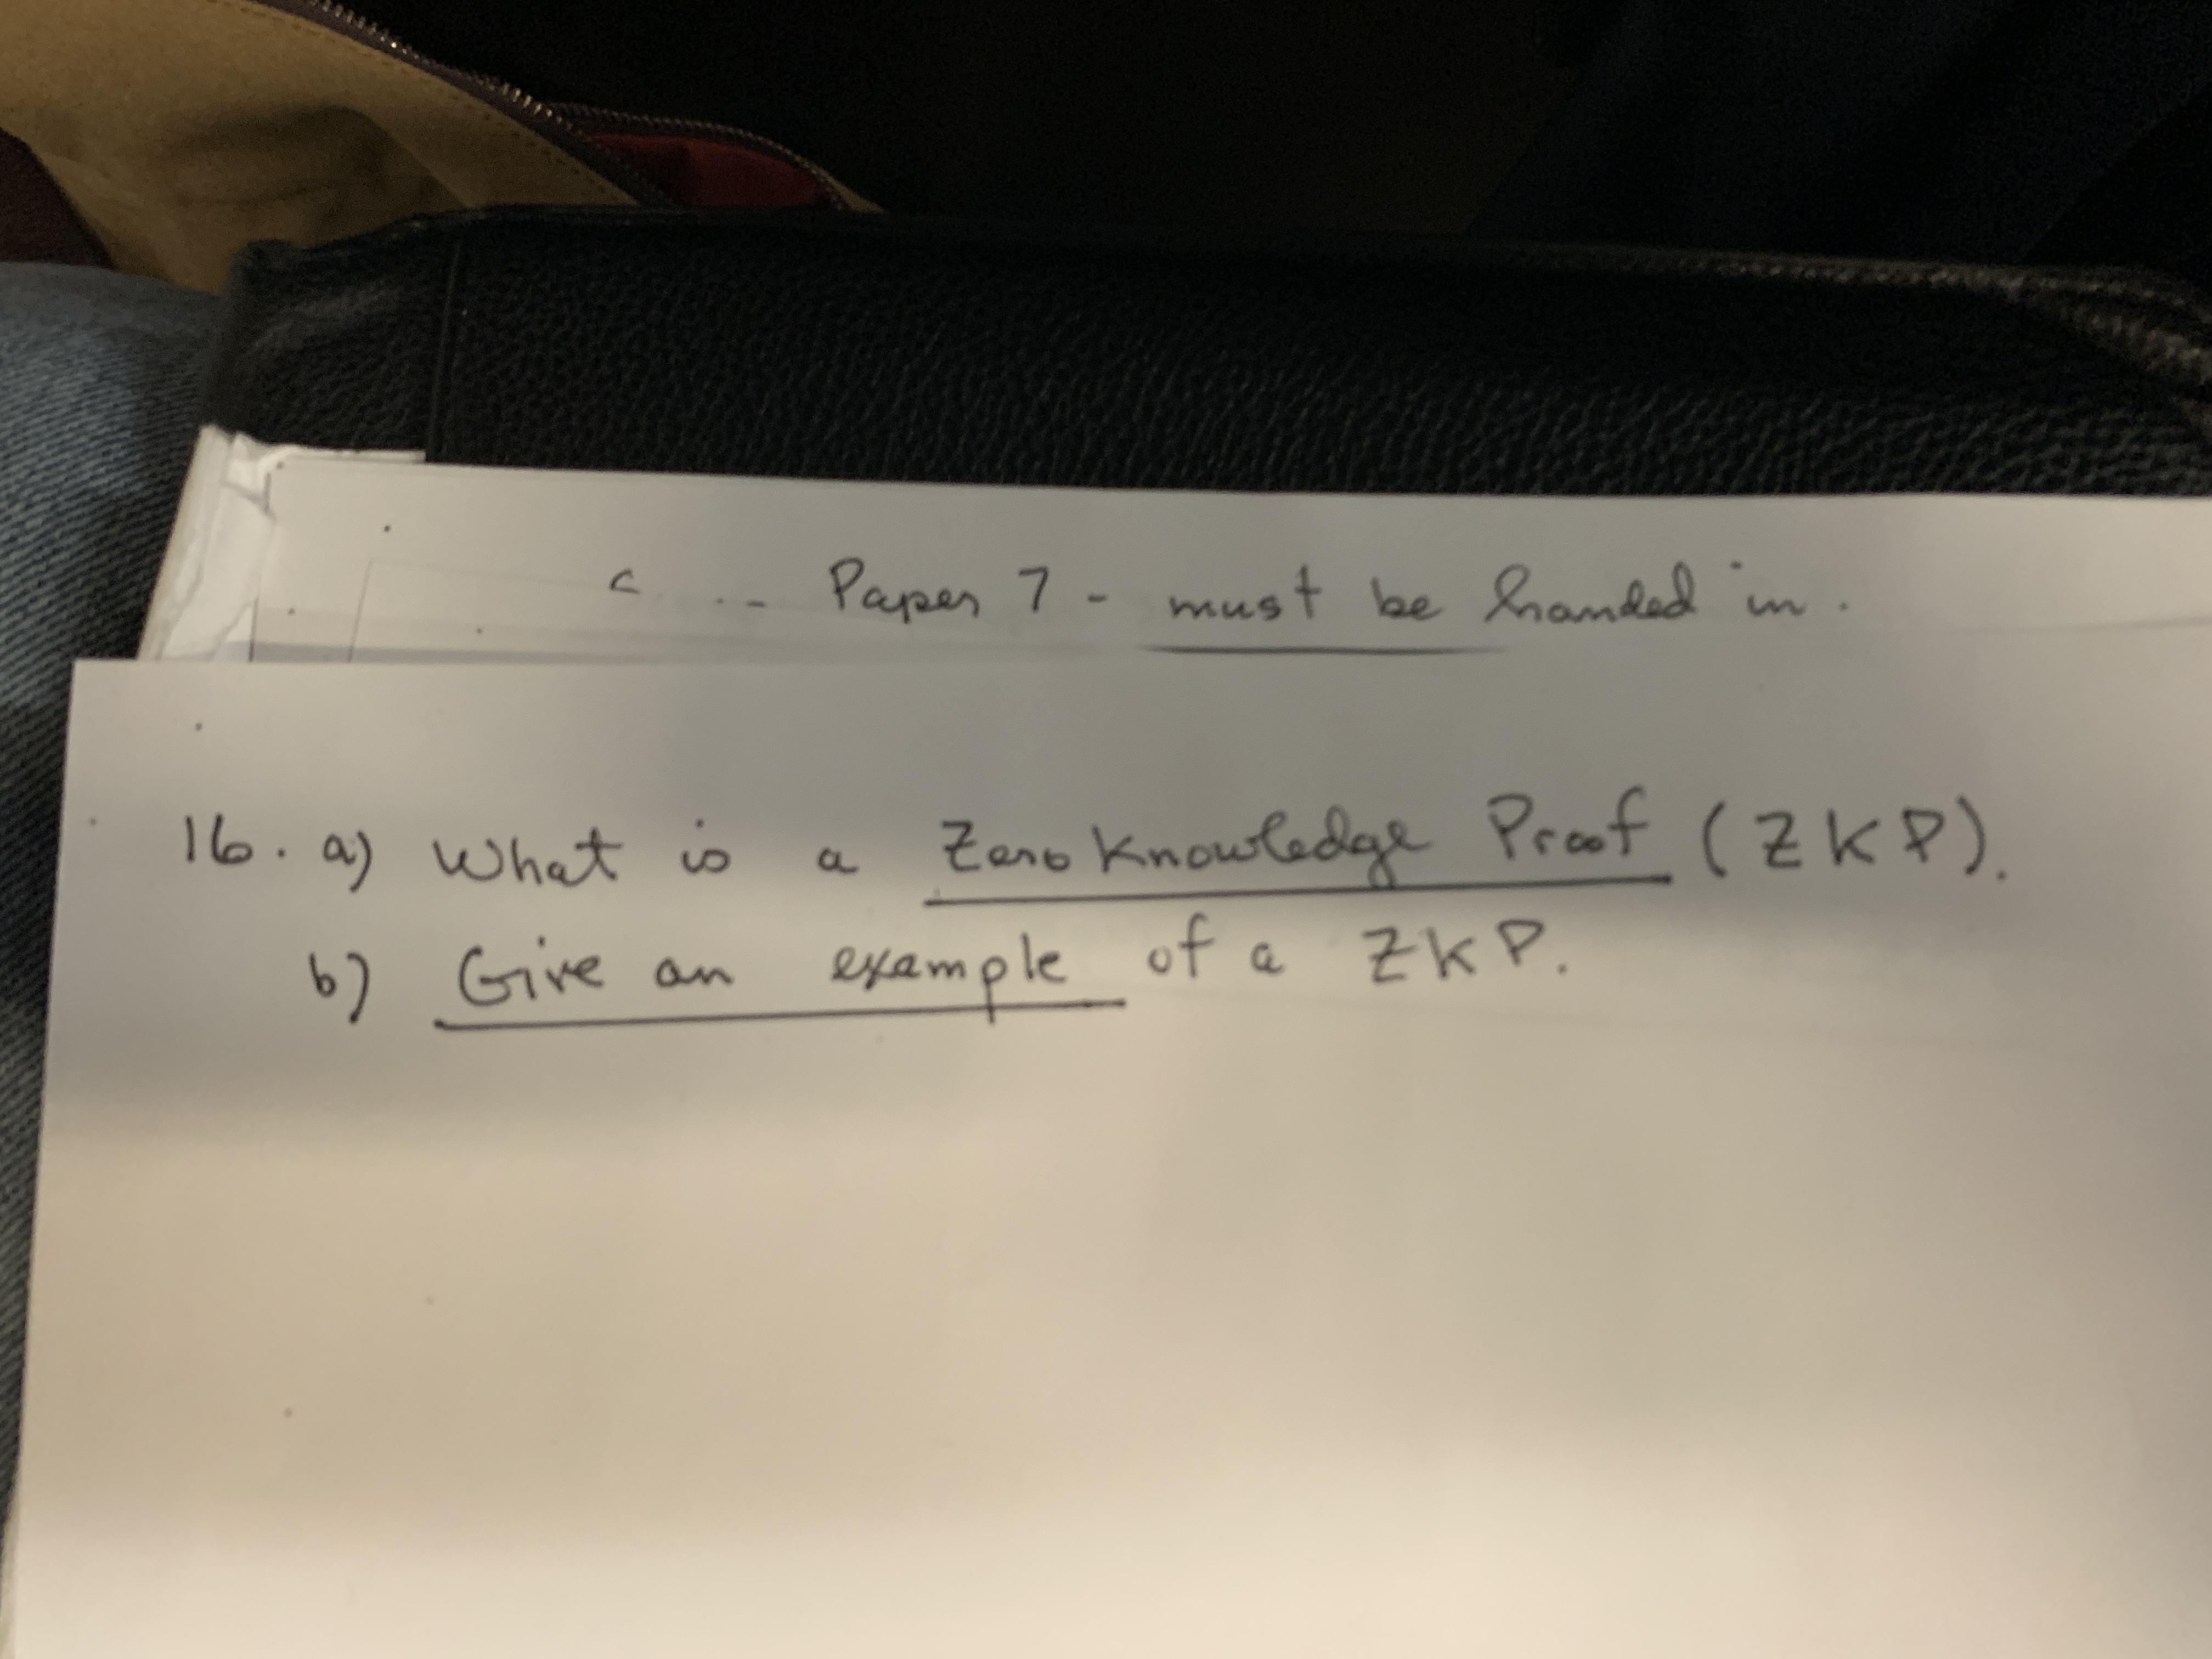 - Paper 7 - must be handed in.
16. a) What is a Zero Knowledge Proof (ZKP).
b) Give an example of a ZKP.